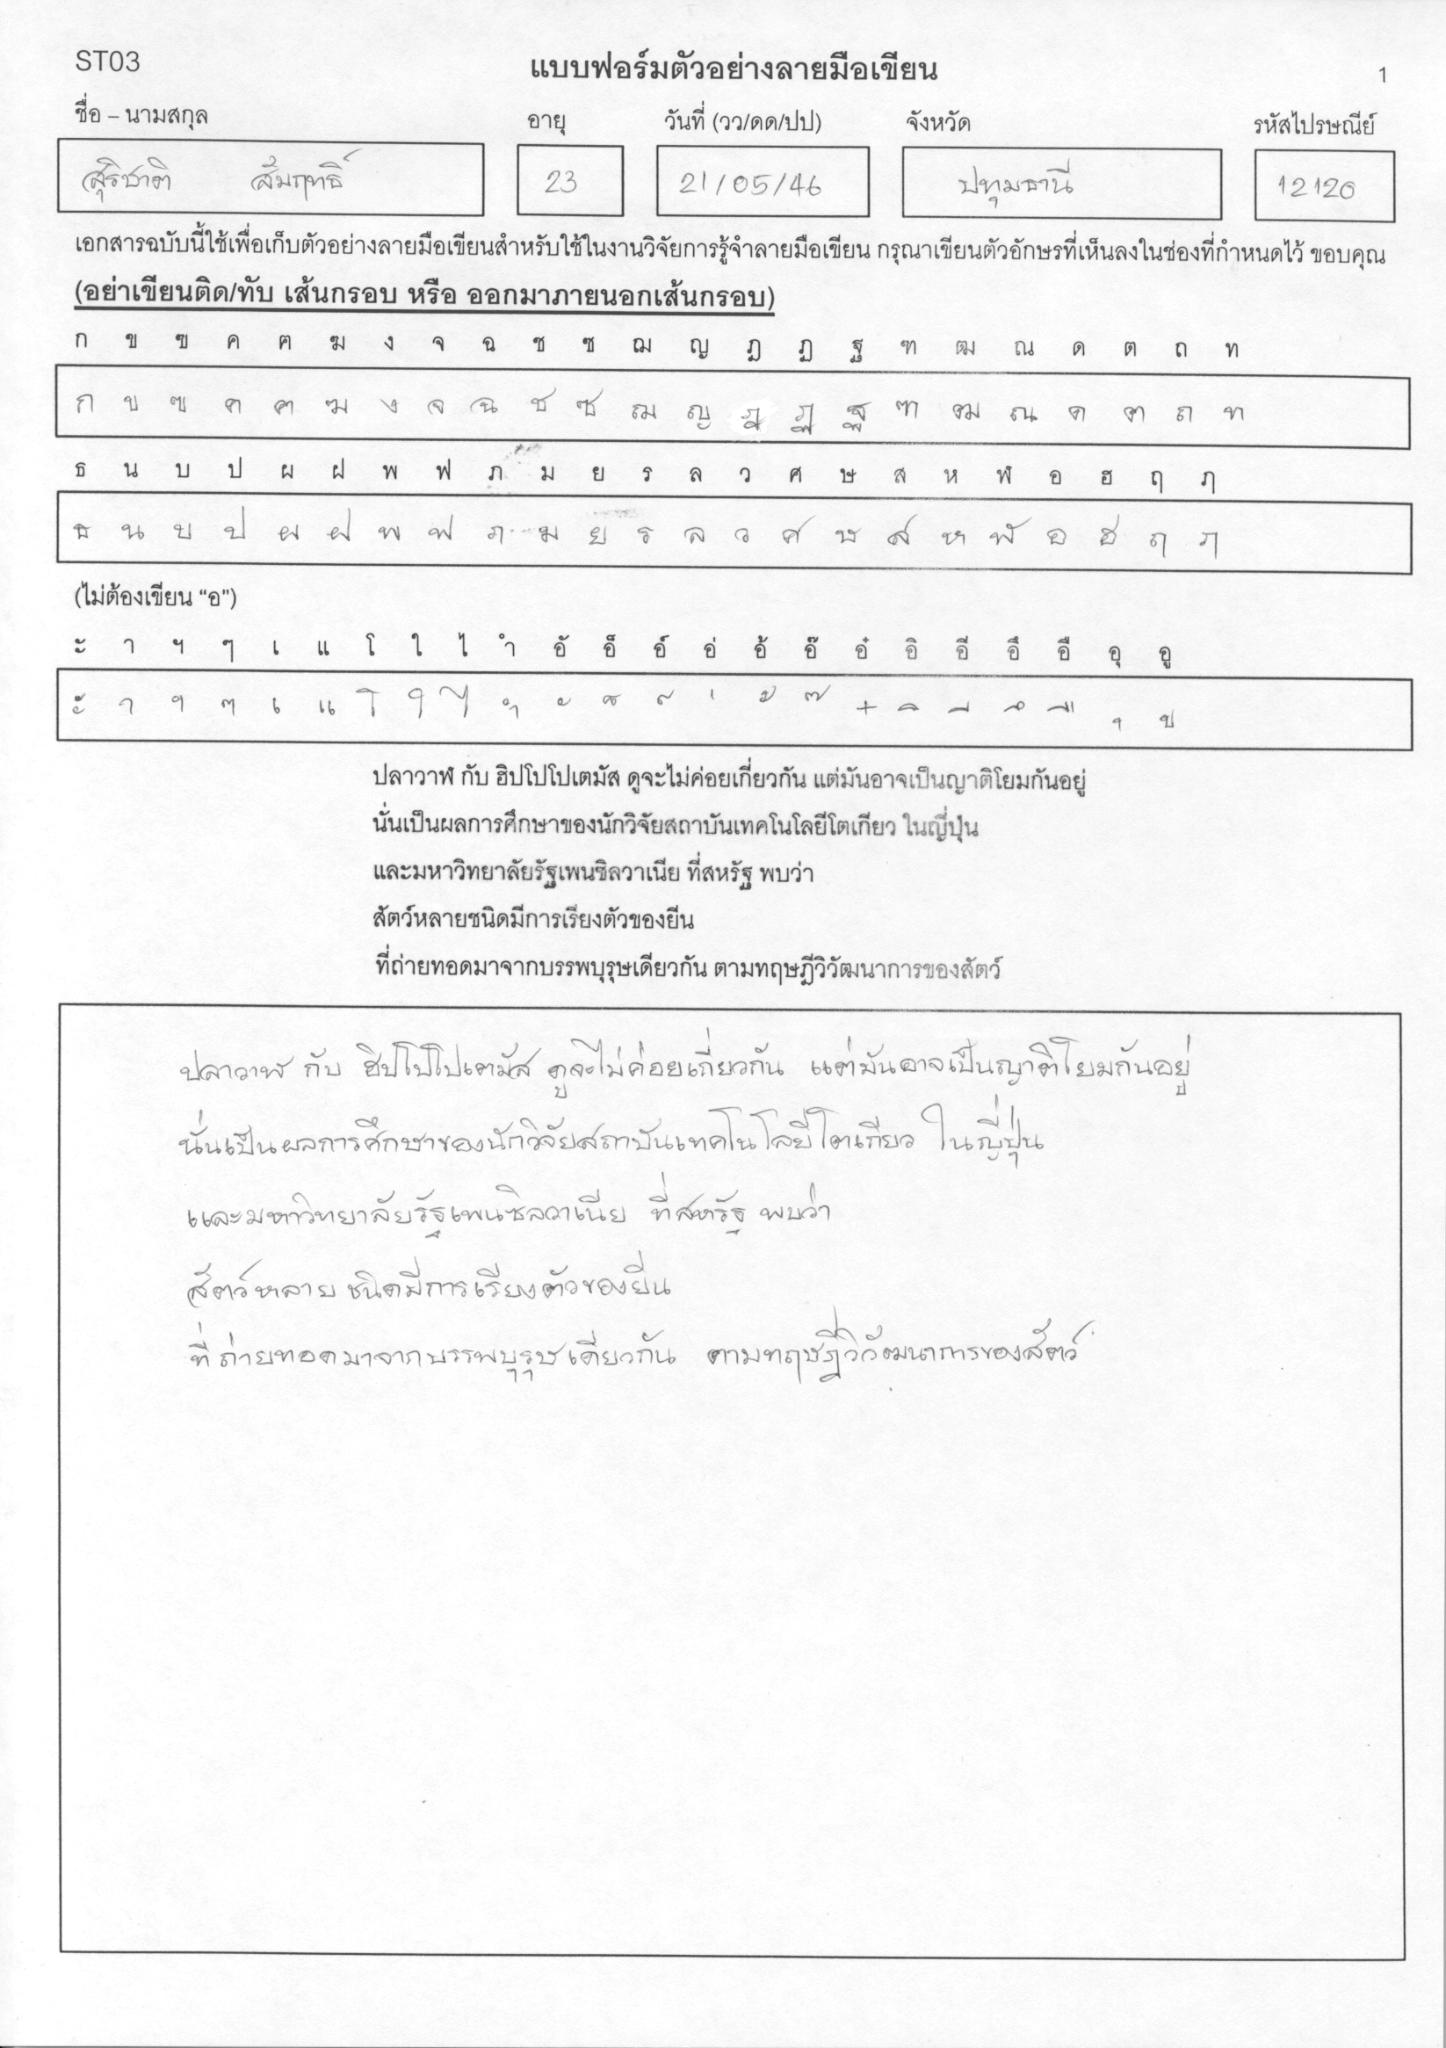 ST03
แบบฟอร์มตัวอย่างลายมือเขียน
1
ชื่อ – นามสกุล อายุ วันที่ (วว/ดด/ปป) จังหวัด รหัสไปรษณีย์
สุริชาติ สัมฤทธิ์ 23 21/05/46 ปทุมธานี 12120
เอกสารฉบับนี้ใช้เพื่อเก็บตัวอย่างลายมือเขียนสำหรับใช้ในงานวิจัยการรู้จำลายมือเขียน กรุณาเขียนตัวอักษรที่เห็นลงในช่องที่กำหนดไว้ ขอบคุณ
(อย่าเขียนติด/ทับ เส้นกรอบ หรือ ออกมาภายนอกเส้นกรอบ)
ก ข ฃ ค ฅ ฆ ง จ ฉ ช ซ ฌ ญ ฎ ฏ ฐ ฑ ฒ ณ ด ต ถ ท
ก ข ฃ ค ฅ ฆ ง จ ฉ ช ซ ฌ ญ ฎ ฏ ฐ ฑ ฒ ณ ด ต ถ ท
ธ น บ ป ผ ฝ พ ฟ ภ ม ย ร ล ว ศ ษ ส ห ฬ อ ฮ ฤ ฦ
ธ น บ ป ผ ฝ พ ฟ ภ ม ย ร ล ว ศ ษ ส ห ฬ อ ฮ ฤ ฦ
(ไม่ต้องเขียน “อ”)
ะ า ฯ ๆ เ แ โ ใ ไ ำ อั อ็ อ์ อ่ อ้ อ๊ อ๋ อิ อี อึ อื อุ อู
ะ า ฯ ๆ เ แ โ ใ ไ ำ ั ็ ์ ่ ้ ๊ ๋ ิ ี ึ ื ุ ู
ปลาวาฬ กับ ฮิปโปโปเตมัส ดูจะไม่ค่อยเกี่ยวกัน แต่มันอาจเป็นญาติโยมกันอยู่
นั่นเป็นผลการศึกษาของนักวิจัยสถาบันเทคโนโลยีโตเกียว ในญี่ปุ่น
และมหาวิทยาลัยรัฐเพนซิลวาเนีย ที่สหรัฐ พบว่า
สัตว์หลายชนิดมีการเรียงตัวของยีน
ที่ถ่ายทอดมาจากบรรพบุรุษเดียวกัน ตามทฤษฎีวิวัฒนาการของสัตว์
ปลาวาฬ กับ ฮิปโปโปเตมัส ดูจะไม่ค่อยเกี่ยวกัน แต่มันอาจเป็นญาติโยมกันอยู่
นั่นเป็นผลการศึกษาของนักวิจัยสถาบันเทคโนโลยีโตเกียว ในญี่ปุ่น
และมหาวิทยาลัยรัฐเพนซิลวาเนีย ที่สหรัฐ พบว่า
สัตว์หลายชนิดมีการเรียงตัวของยีน
ที่ถ่ายทอดมาจากบรรพบุรุษเดียวกัน ตามทฤษฎีวิวัฒนาการของสัตว์